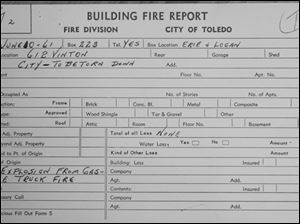 BUILDING FIRE REPORT
FIRE DIVISION CITY OF TOLEDO
JUNE 10-61 Box 223 Tel. YES Box Location ERIE & LOGAN
Location 612 VINTON Rear Garage Shed
CITY - TO BE TORN DOWN
Floor No. Apt. No.
Occupied As No. of Stories No. of Apts.
Frame Brick Conc. Bl. Metal Composite
Approved Wood Shingle Tar & Gravel Other
Roof Attic Room Floor No. Basement
Adj. Property Total of all Loss NONE
Adj. Property Water Loss Yes No Amount
to Pt. of Origin Kind of Other Loss Amount
of Origin Building: Loss Insured
EXPLOSION FROM GAS- Agt. Add.
E TRUCK FIRE Contents: Insured
Agt. Add.
Call Company
ious Fill Out Form 5 Agt. Add.